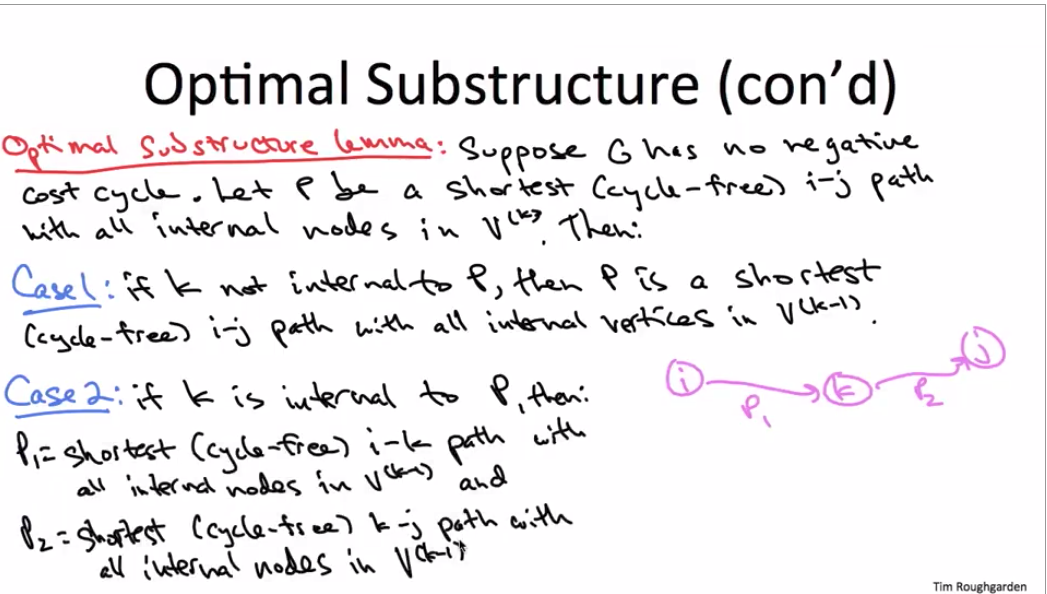 Optimal Substructure (con'd)
Optimal Substructure Lemma: Suppose G has no negative
cost cycle. Let P be a shortest (cycle-free) i-j path
with all internal nodes in V^(k). Then:
Case 1: if k not internal to P, then P is a shortest
(cycle-free) i-j path with all internal vertices in V^(k-1).
Case 2: if k is internal to P, then:
P₁ = shortest (cycle-free) i-k path with
all internal nodes in V^(k-1) and
P₂ = shortest (cycle-free) k-j path with
all internal nodes in V^(k-1)
i
k
j
P₁
P₂
Tim Roughgarden